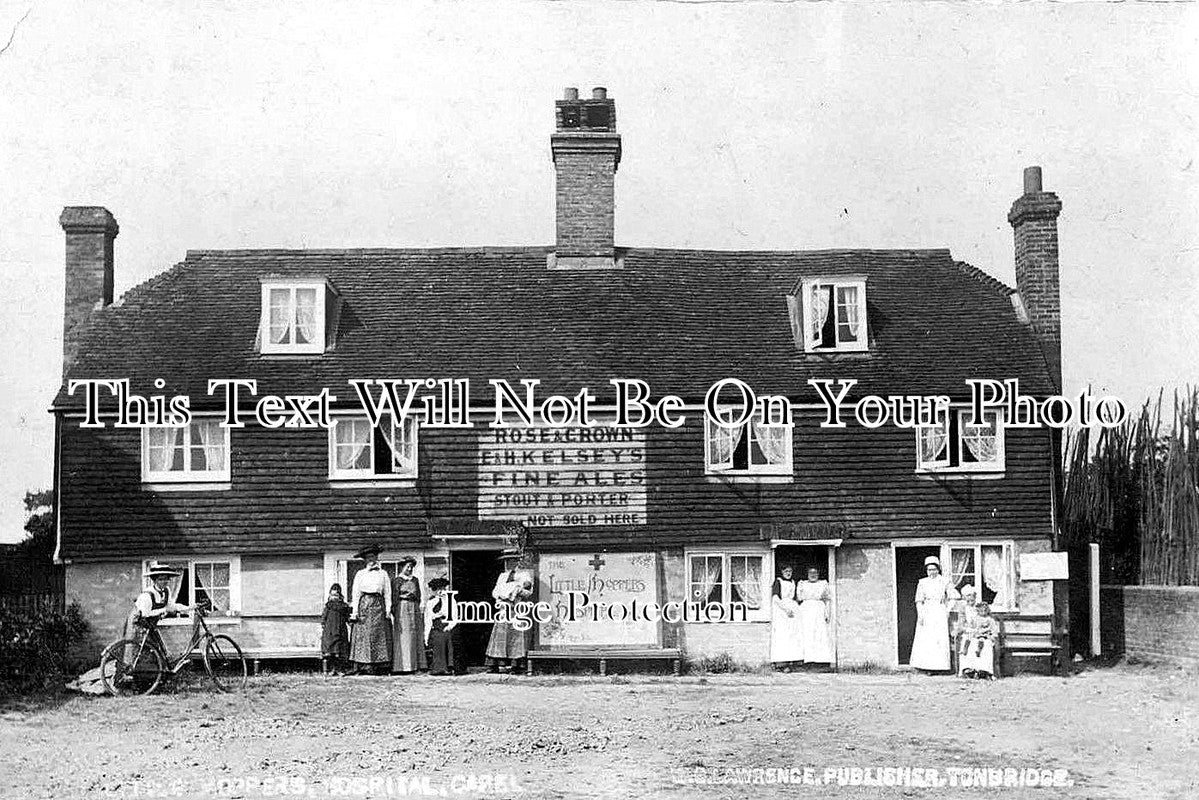 This Text Will Not Be On Your Photo
ROSE & CROWN
E & H KELSEY'S
FINE ALES
STOUT & PORTER
NOT SOLD HERE
THE
LITTLE HOPPERS
Image Protection
HOPPERS, HOSPITAL, CAPEL
LAWRENCE, PUBLISHER, TONBRIDGE.